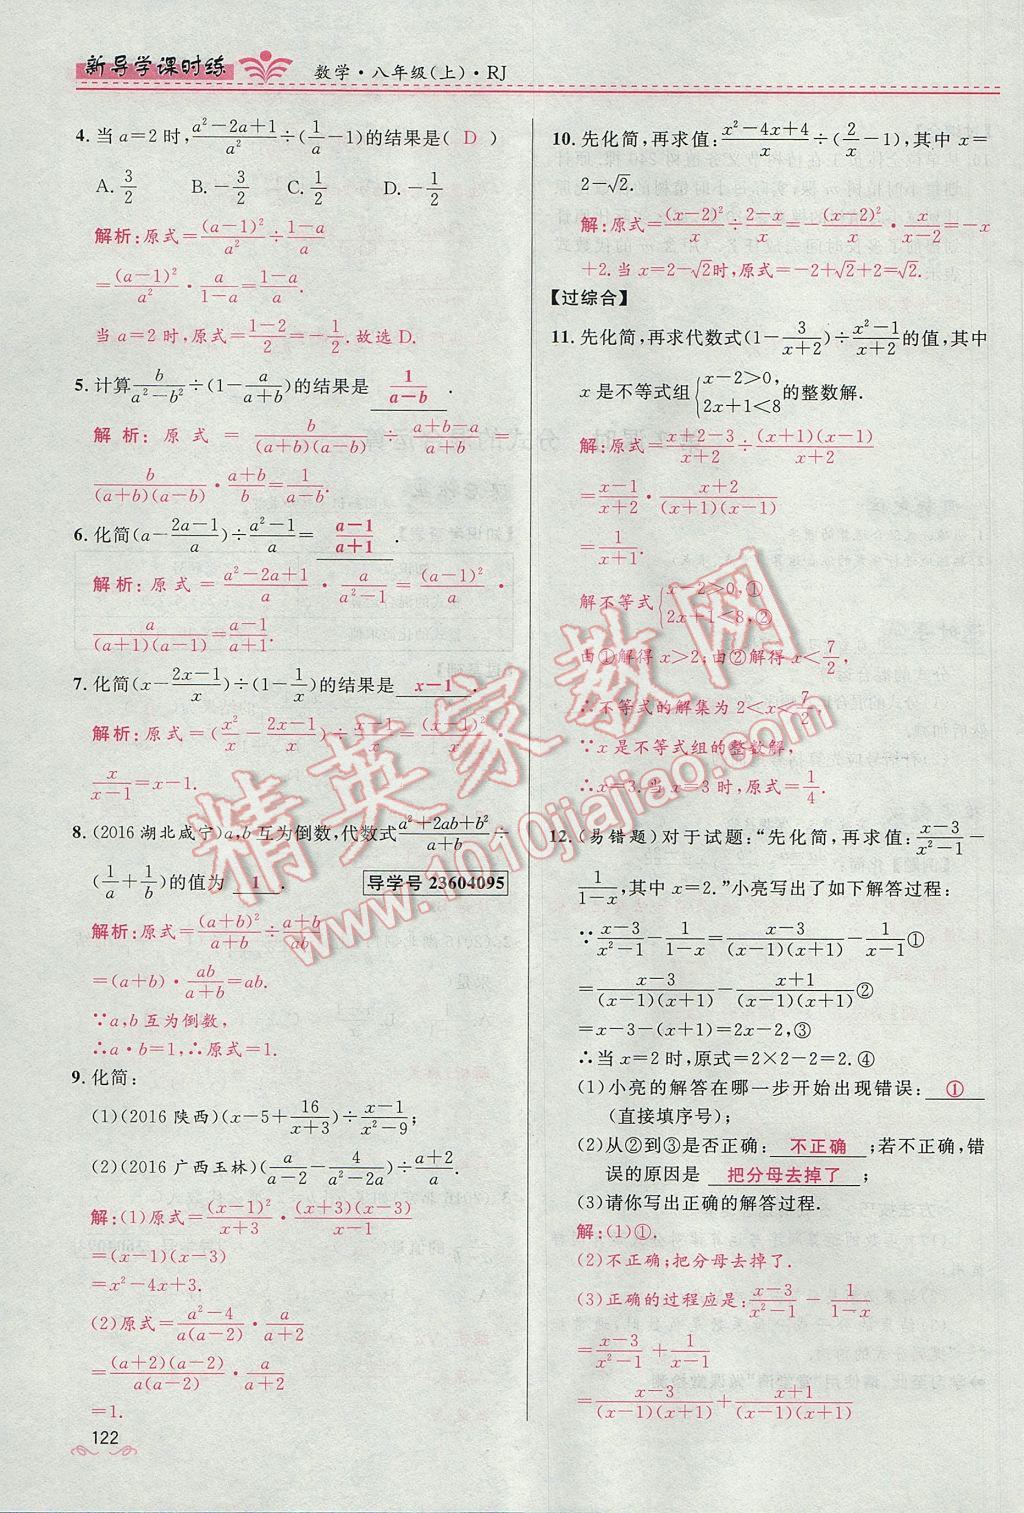 新导学课时练 数学·八年级(上)·RJ
4. 当a=2时, (a²-2a+1)/a² ÷(1/a -1)的结果是( D )
A. 3/2 B. -3/2 C. 1/2 D. -1/2
解析:原式=(a-1)²/a² ÷ (1-a)/a
=(a-1)²/a² · a/(1-a) = (1-a)/a.
当a=2时,原式=(1-2)/2=-1/2.故选D.
5. 计算 b/(a²-b²) ÷(1- a/(a+b))的结果是 1/(a-b) .
解析:原式 = b/((a+b)(a-b)) ÷ (a+b-a)/(a+b) =
b/((a+b)(a-b)) · (a+b)/b = 1/(a-b).
6. 化简(a- (2a-1)/a)÷ (a²-1)/a = (a-1)/(a+1) .
解析:原式= (a²-2a+1)/a · a/(a²-1) = (a-1)²/a ·
a/((a+1)(a-1)) = (a-1)/(a+1).
7. 化简(x- (2x-1)/x)÷(1- 1/x)的结果是 x-1 .
解析:原式=(x²/x - (2x-1)/x)÷ (x-1)/x = (x-1)²/x ·
x/(x-1) =x-1.
8. (2016湖北咸宁)a,b互为倒数,代数式 (a²+2ab+b²)/(a+b) ÷
(1/a + 1/b)的值为 1 . 导学号 23604095
解析:原式= (a+b)²/(a+b) ÷ (a+b)/ab
=(a+b)· ab/(a+b) =ab.
∵a,b互为倒数,
∴a·b=1,∴原式=1.
9. 化简:
(1)(2016陕西)(x-5+ 16/(x+3))÷ (x-1)/(x²-9);
(2)(2016广西玉林)(a/(a-2) - 4/(a²-2a))÷ (a+2)/a.
解:(1)原式= (x-1)²/(x+3) · (x+3)(x-3)/(x-1)
=(x-1)(x-3)
=x²-4x+3.
(2)原式= (a²-4)/(a(a-2)) · a/(a+2)
= (a+2)(a-2)/(a(a-2)) · a/(a+2)
=1.
122
10. 先化简,再求值: (x²-4x+4)/x ÷(2/x -1),其中x=
2-√2.
解:原式= (x-2)²/x ÷ (2-x)/x =- (x-2)²/x · x/(x-2) =-x
+2.当x=2-√2时,原式=-2+√2+2=√2.
【过综合】
11. 先化简,再求代数式(1- 3/(x+2))÷ (x²-1)/(x+2)的值,其中
x是不等式组{x-2>0, 2x+1<8 的整数解.
解:原式= (x+2-3)/(x+2) ÷ (x+1)(x-1)/(x+2)
= (x-1)/(x+2) · (x+2)/((x+1)(x-1))
= 1/(x+1).
解不等式{x-2>0,① 2x+1<8,②
由①解得x>2;由②解得x<7/2,
∴不等式的解集为2<x<7/2.
∵x是不等式组的整数解,
∴x=3.当x=3时,原式=1/4.
12. (易错题)对于试题:“先化简,再求值: (x-3)/(x²-1) -
1/(1-x),其中x=2.”小亮写出了如下解答过程:
∵ (x-3)/(x²-1) - 1/(1-x) = (x-3)/((x-1)(x+1)) - 1/(x-1)①
= (x-3)/((x-1)(x+1)) - (x+1)/((x-1)(x+1))②
=x-3-(x+1)=2x-2,③
∴当x=2时,原式=2×2-2=2.④
(1)小亮的解答在哪一步开始出现错误: ①
(直接填序号);
(2)从②到③是否正确: 不正确 ;若不正确,错
误的原因是 把分母去掉了 ;
(3)请你写出正确的解答过程.
解:(1)①.
(2)不正确;把分母去掉了.
(3)正确的过程应是: (x-3)/(x²-1) - 1/(1-x)
= (x-3)/(x²-1) + 1/(x-1)
= (x-3)/((x-1)(x+1)) + (x+1)/((x-1)(x+1))
精英家教网
www.1010jiajiao.com